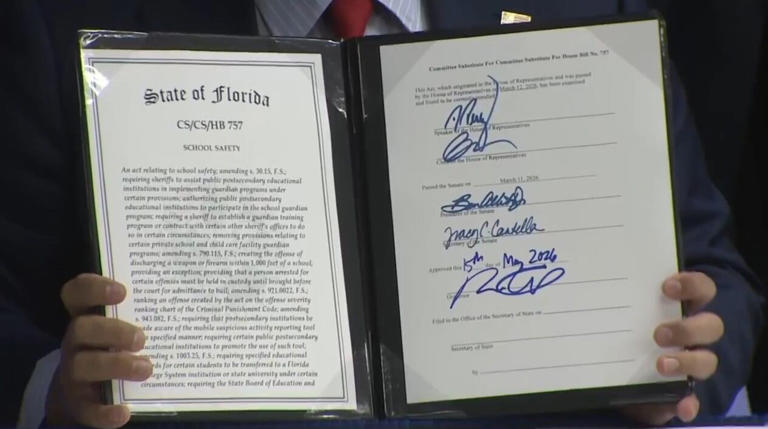 State of Florida
CS/CS/HB 757
SCHOOL SAFETY
An act relating to school safety; amending s. 30.15, F.S.;
requiring sheriffs to assist public postsecondary educational
institutions in implementing guardian programs under
certain provisions; authorizing public postsecondary
educational institutions to participate in the school guardian
program; requiring a sheriff to establish a guardian training
program or contract with certain other sheriff's offices to do
so in certain circumstances; removing provisions relating to
certain private school and child care facility guardian
programs; amending s. 790.115, F.S.; creating the offense of
discharging a weapon or firearm within 1,000 feet of a school,
providing an exception; providing that a person arrested for
certain offenses must be held in custody until brought before
the court for admittance to bail; amending s. 921.0022, F.S.;
ranking an offense created by the act on the offense severity
ranking chart of the Criminal Punishment Code; amending
s. 943.082, F.S.; requiring that postsecondary institutions be
ade aware of the mobile suspicious activity reporting tool
specified manner; requiring certain public postsecondary
ucational institutions to promote the use of such tool;
ending s. 1003.25, F.S.; requiring specified educational
rds for certain students to be transferred to a Florida
ege System institution or state university under certain
circumstances; requiring the State Board of Education and
Committee Substitute For Committee Substitute For House Bill No. 757
This Act, which originated in the House of Representatives and was passed
by the House of Representatives on March 12, 2026, has been examined
and found to be correctly enrolled.
Speaker of the House of Representatives
the House of Representatives
Passed the Senate on March 11, 2026
President of the Senate
Tracy C. Cantella
Secretary of the Senate
Approved this 15th day of May 2026
Governor
Filed in the Office of the Secretary of State on
Secretary of State
by